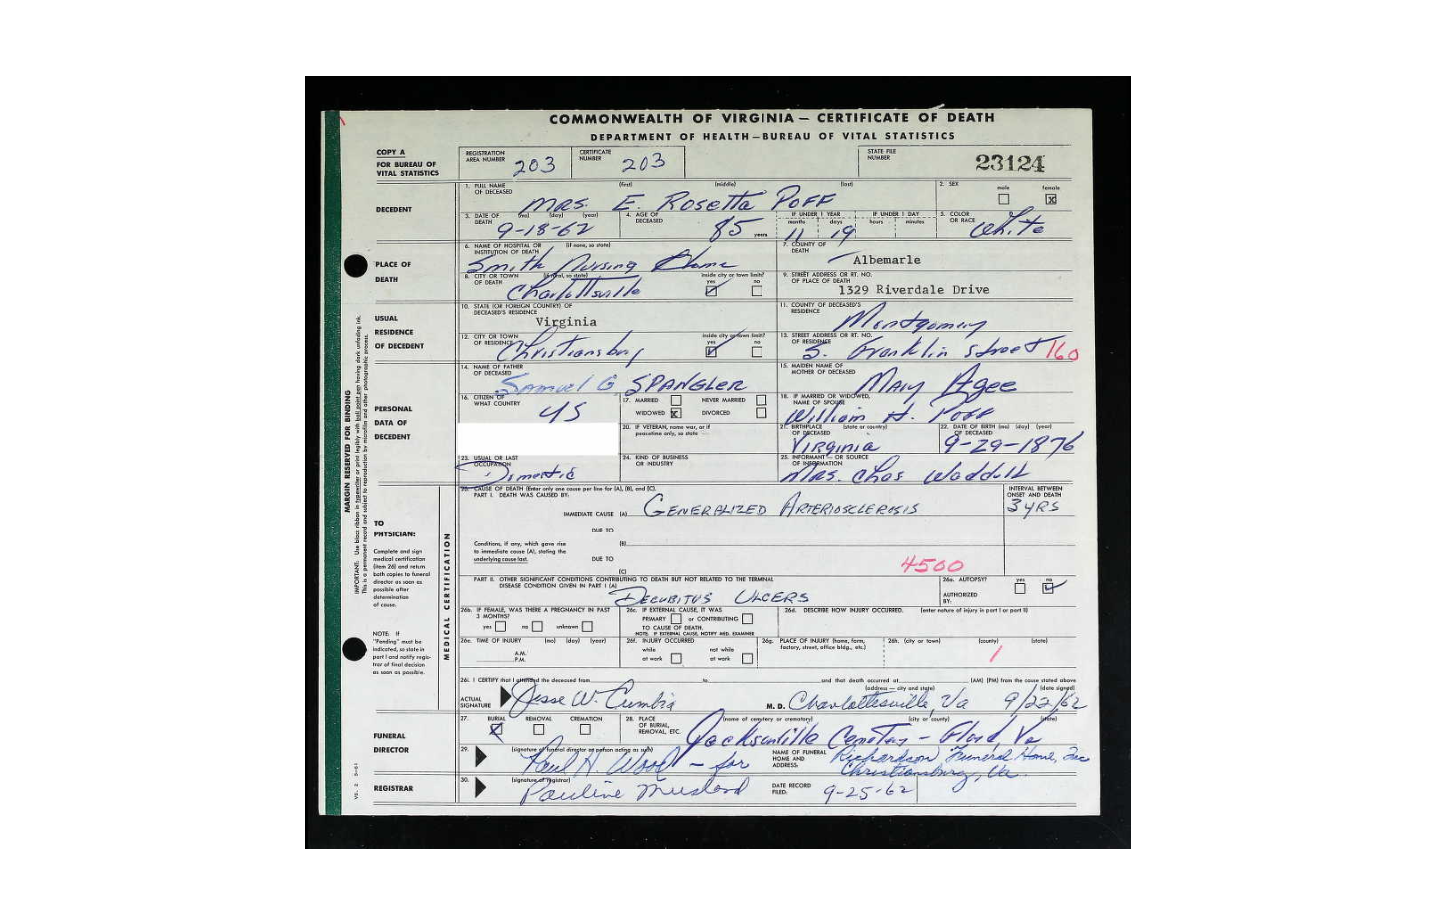 COMMONWEALTH OF VIRGINIA — CERTIFICATE OF DEATH
DEPARTMENT OF HEALTH—BUREAU OF VITAL STATISTICS
COPY A
FOR BUREAU OF VITAL STATISTICS
REGISTRATION AREA NUMBER 203
CERTIFICATE NUMBER 203
STATE FILE NUMBER 23124
DECEDENT
1. FULL NAME OF DECEASED (first) (middle) (last) MRS. E. Rosetta POFF
2. SEX male female X
3. DATE OF DEATH (mo) (day) (year) 9-18-62
4. AGE OF DECEASED 85 years
IF UNDER 1 YEAR months days 11 19
IF UNDER 1 DAY hours minutes
5. COLOR OR RACE White
PLACE OF DEATH
6. NAME OF HOSPITAL OR INSTITUTION OF DEATH (if none, so state) Smith Nursing Home
7. COUNTY OF DEATH Albemarle
8. CITY OR TOWN OF DEATH (if rural, so state) Charlottsville
inside city or town limit? yes no
9. STREET ADDRESS OR RT. NO. OF PLACE OF DEATH 1329 Riverdale Drive
USUAL RESIDENCE OF DECEDENT
10. STATE (OR FOREIGN COUNTRY) OF DECEASED'S RESIDENCE Virginia
11. COUNTY OF DECEASED'S RESIDENCE Montgomery
12. CITY OR TOWN OF RESIDENCE Christiansburg
inside city or town limit? yes no
13. STREET ADDRESS OR RT. NO. OF RESIDENCE S. Franklin Street 160
PERSONAL DATA OF DECEDENT
14. NAME OF FATHER OF DECEASED Samuel G SPANGLER
15. MAIDEN NAME OF MOTHER OF DECEASED Mary Agee
16. CITIZEN OF WHAT COUNTRY US
17. MARRIED NEVER MARRIED
WIDOWED X DIVORCED
18. IF MARRIED OR WIDOWED, NAME OF SPOUSE William H. Poff
20. IF VETERAN, name war, or if peacetime only, so state
21. BIRTHPLACE OF DECEASED (state or country) Virginia
22. DATE OF BIRTH (mo) (day) (year) OF DECEASED 9-29-1876
23. USUAL OR LAST OCCUPATION Domestic
24. KIND OF BUSINESS OR INDUSTRY
25. INFORMANT—OR SOURCE OF INFORMATION MRS. Chas Waddell
MARGIN RESERVED FOR BINDING
MEDICAL CERTIFICATION
TO PHYSICIAN:
Complete and sign medical certification (item 26) and return both copies to funeral director as soon as possible after determination of cause.
NOTE: If "Pending" must be indicated, so state in part I and notify registrar of final decision as soon as possible.
26. CAUSE OF DEATH (Enter only one cause per line for (A), (B), and (C).
PART I. DEATH WAS CAUSED BY:
INTERVAL BETWEEN ONSET AND DEATH
IMMEDIATE CAUSE (A) GENERALIZED ARTERIOSCLEROSIS 3 YRS
DUE TO
Conditions, if any, which gave rise to immediate cause (A), stating the underlying cause last. (B)
DUE TO
(C)
4500
PART II. OTHER SIGNIFICANT CONDITIONS CONTRIBUTING TO DEATH BUT NOT RELATED TO THE TERMINAL DISEASE CONDITION GIVEN IN PART I (A) DECUBITUS ULCERS
26a. AUTOPSY? yes no
AUTHORIZED BY:
26b. IF FEMALE, WAS THERE A PREGNANCY IN PAST 3 MONTHS? yes no unknown
26c. IF EXTERNAL CAUSE, IT WAS PRIMARY or CONTRIBUTING TO CAUSE OF DEATH.
NOTE. IF EXTERNAL CAUSE, NOTIFY MED. EXAMINER
26d. DESCRIBE HOW INJURY OCCURRED. (enter nature of injury in part I or part II)
26e. TIME OF INJURY (mo) (day) (year) A.M. P.M.
26f. INJURY OCCURRED while at work not while at work
26g. PLACE OF INJURY (home, farm, factory, street, office bldg., etc.)
26h. (city or town) (county) (state)
1
26i. I CERTIFY that I attended the deceased from to and that death occurred at (AM) (PM) from the cause stated above
ACTUAL SIGNATURE Jesse W. Cumbia M.D. (address — city and state) Charlottesville, Va (date signed) 9/22/62
FUNERAL DIRECTOR
27. BURIAL REMOVAL CREMATION
28. PLACE OF BURIAL, REMOVAL, ETC. (name of cemetery or crematory) (city or county) (state) Jacksonville Cemetery — Floyd, Va
29. (signature of funeral director or person acting as such) Paul H. Wood — for
NAME OF FUNERAL HOME AND ADDRESS. Richardson Funeral Home, Inc Christiansburg, Va.
REGISTRAR
30. (signature of registrar) Pauline
DATE RECORD FILED: 9-25-62